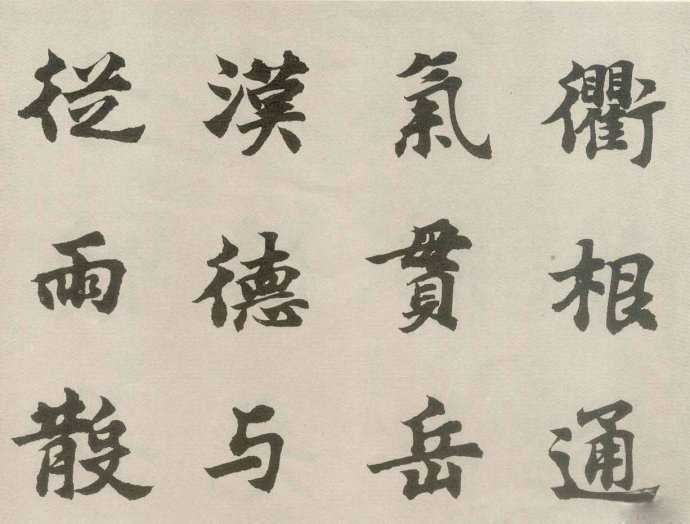 衢根通
氣貫岳
漢德与
従雨散